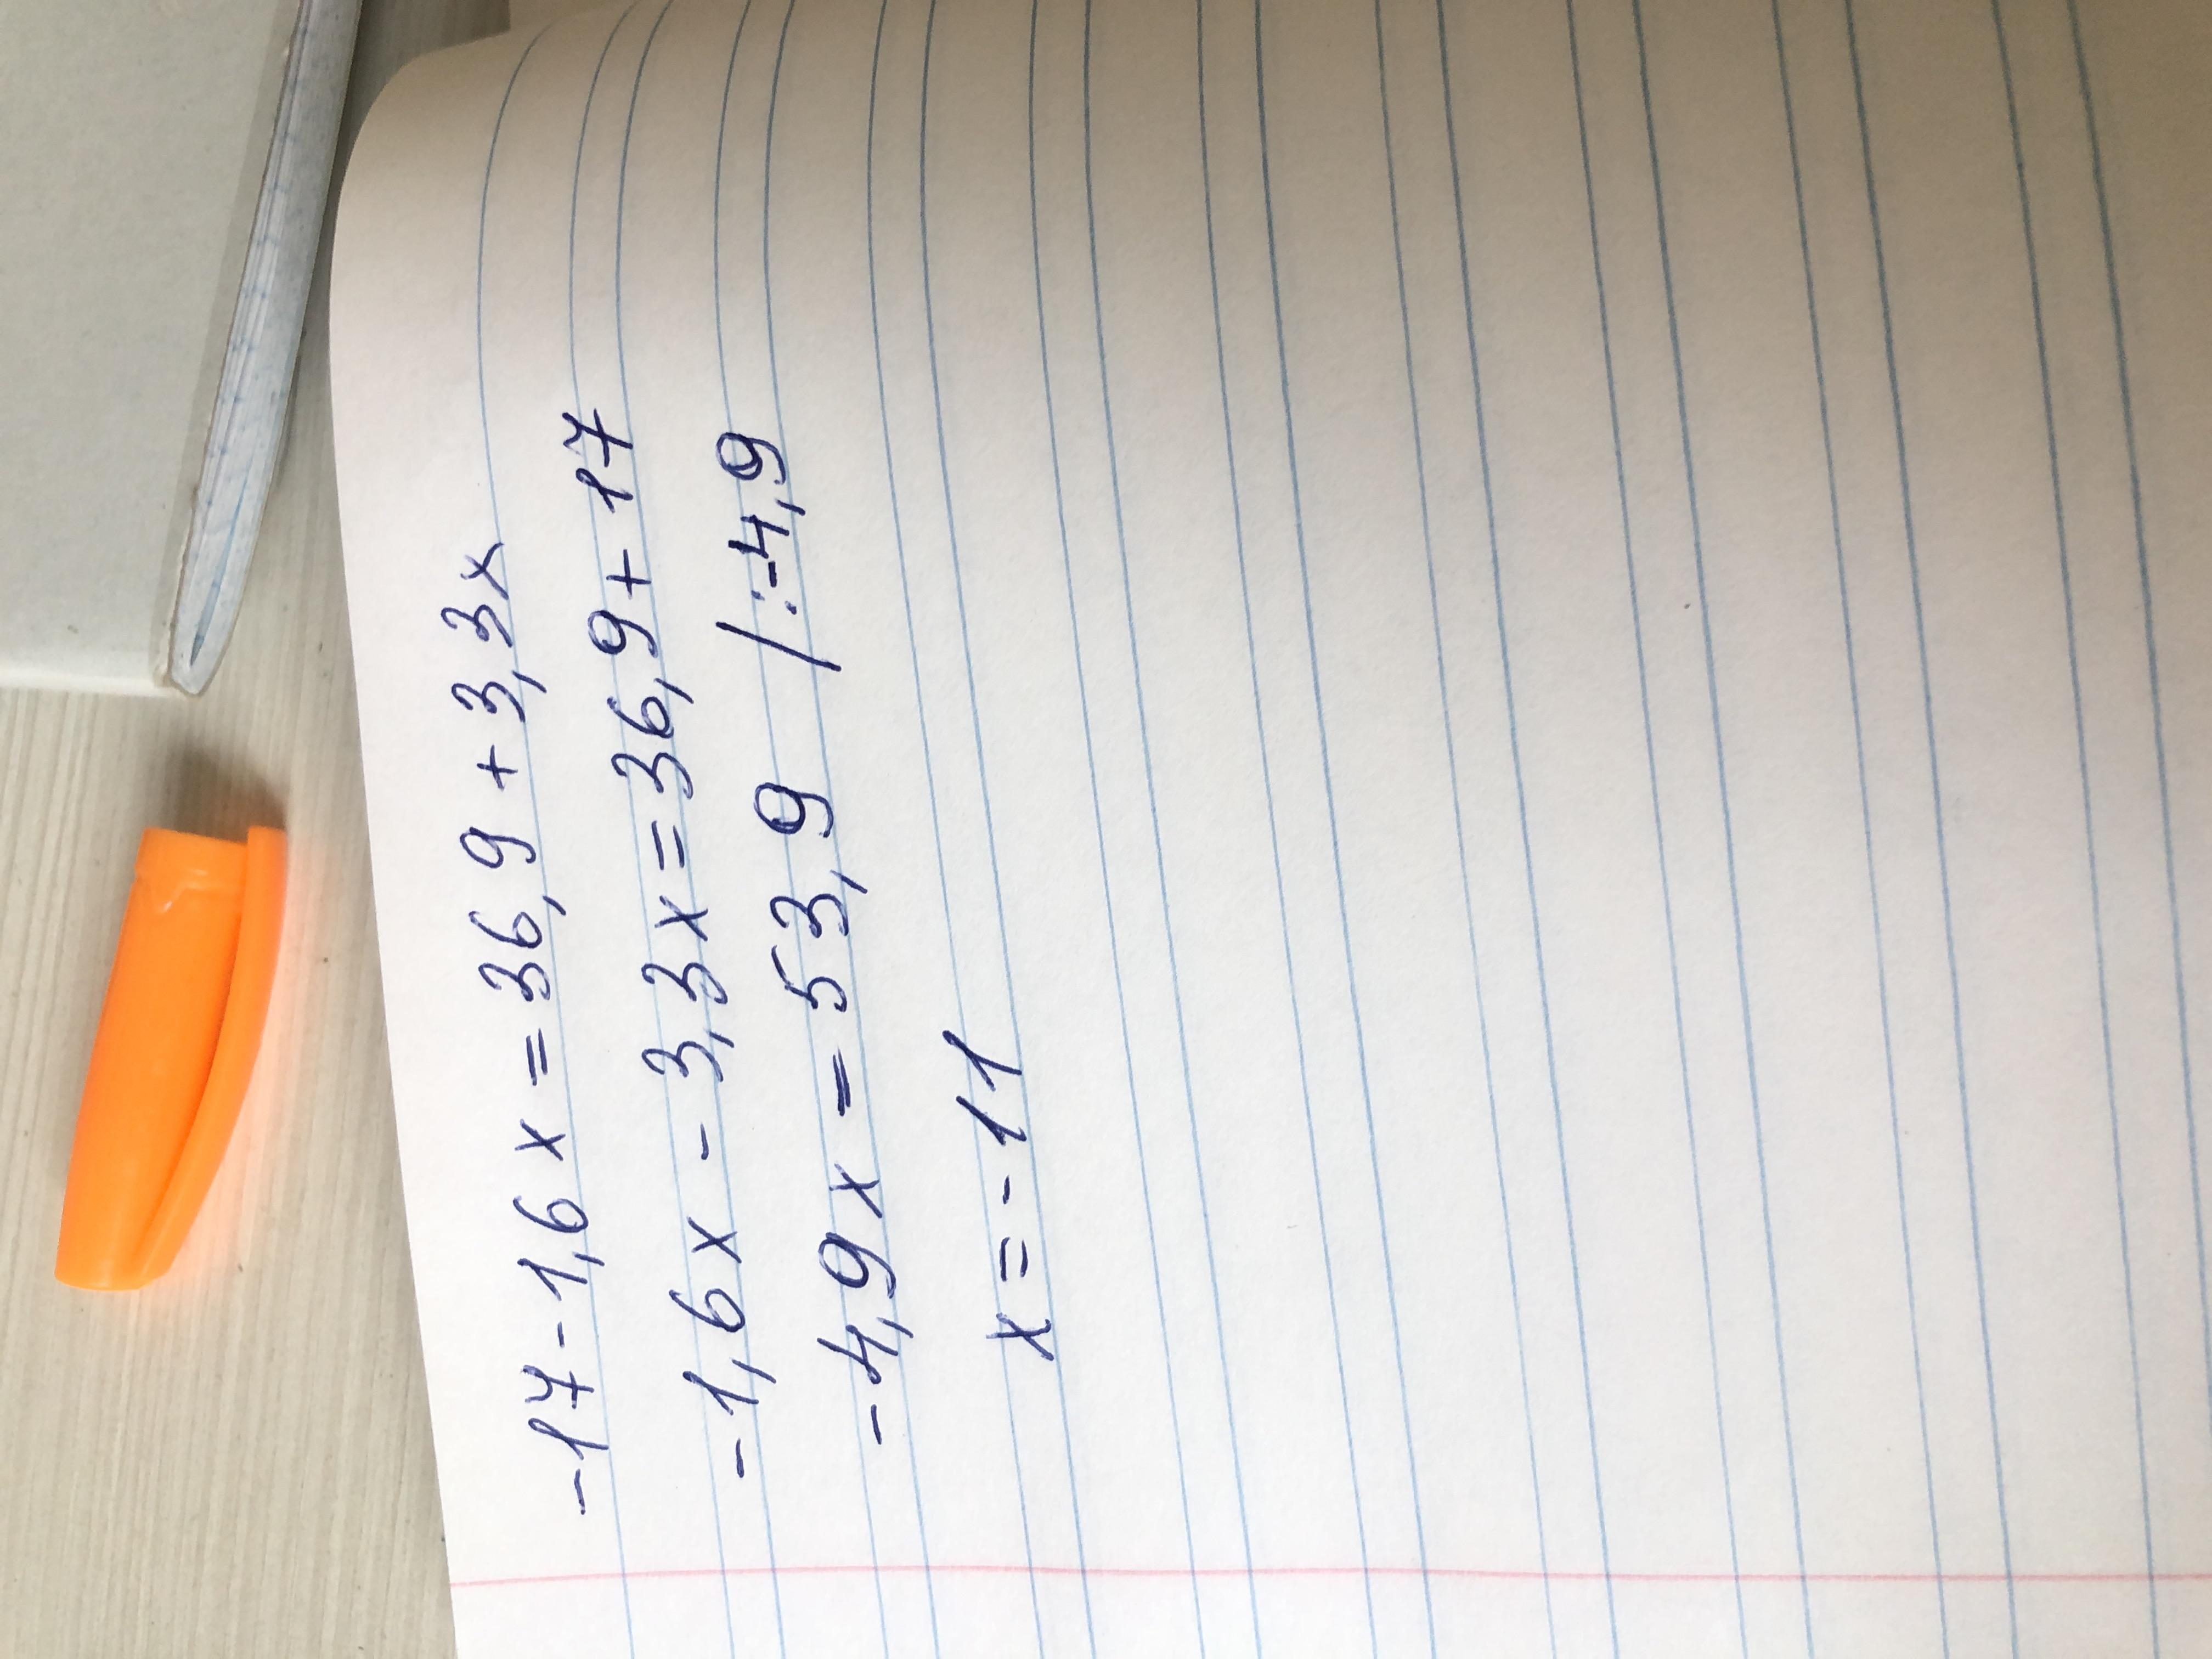 -17-1,6x=36,9+3,3x
-1,6x-3,3x=36,9+17
-4,9x=53,9 /:-4,9
x=-11